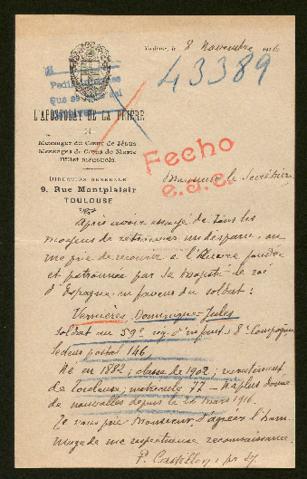 Toulouse, le 8 Novembre 1916
43389
L'APOSTOLAT DE LA PRIÈRE
Messager du Cœur de Jésus
Messager du Cœur de Marie
Petit Messager
Fecho
e.s.c.
DIRECTION GÉNÉRALE
9, Rue Montplaisir
TOULOUSE
Monsieur le Secrétaire
Après avoir essayé de tous les
moyens de retrouver un disparu, on
me prie de recourir à l'œuvre fondée
et patronnée par Sa Majesté le roi
d'Espagne, en faveur du soldat :
Vernières Dominique-Jules
soldat au 59e rég. d'infant. 8e Compagnie
Secteur postal 146.
Né en 1882, classe de 1902, recrutement
de Toulouse, matricule 77 – N'a plus donné
de nouvelles depuis le 20 mars 1916.
Je vous prie Monsieur, d'agréer l'hom-
mage de ma respectueuse reconnaissance.
P. Castillon, pr